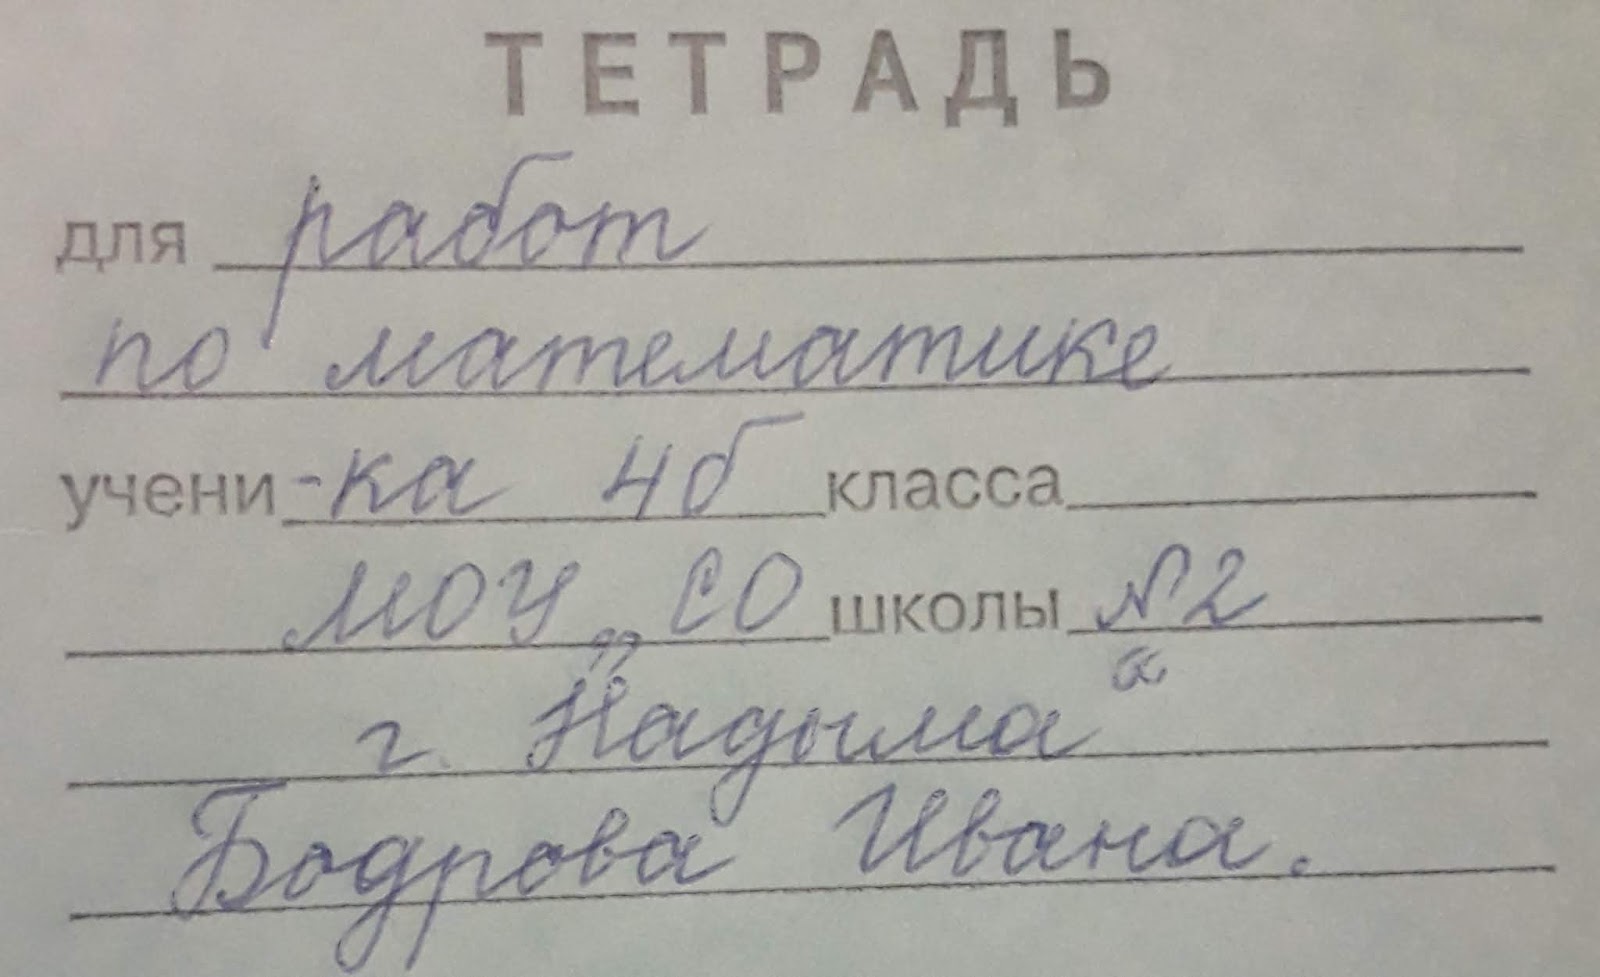 ТЕТРАДЬ
для работ
по математике
учени-ка 4б класса
МОУ „СО школы №2
г. Надыма"
Бодрова Ивана.